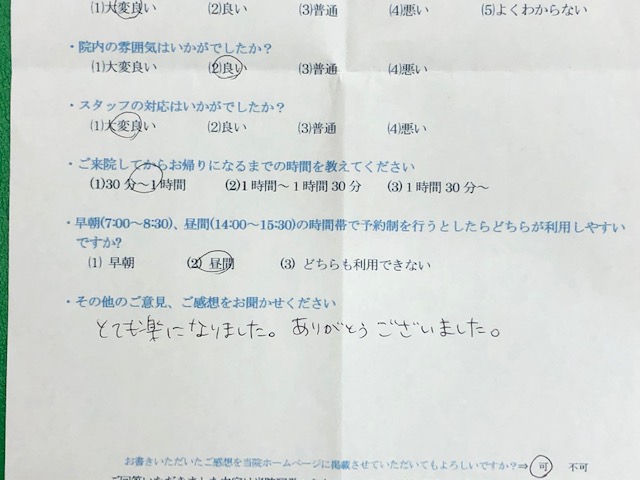 (1)大変良い (2)良い (3)普通 (4)悪い (5)よくわからない
・院内の雰囲気はいかがでしたか?
(1)大変良い (2)良い (3)普通 (4)悪い
・スタッフの対応はいかがでしたか?
(1)大変良い (2)良い (3)普通 (4)悪い
・ご来院してからお帰りになるまでの時間を教えてください
(1)30分〜1時間 (2)1時間〜1時間30分 (3)1時間30分〜
・早朝(7:00〜8:30)、昼間(14:00〜15:30)の時間帯で予約制を行うとしたらどちらが利用しやすい
ですか?
(1) 早朝 (2) 昼間 (3) どちらも利用できない
・その他のご意見、ご感想をお聞かせください
とても楽になりました。ありがとうございました。
お書きいただいたご感想を当院ホームページに掲載させていただいてもよろしいですか?⇒ 可 不可